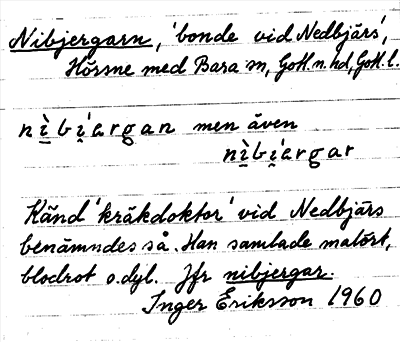 Nibjergarn, 'bonde vid Nedbjärs',
Hörsne med Bara sn, Gotl. n. hd, Gotl. l.
nìbi̯ärgan men även
nìbi̯ärgar
Känd 'kräkdoktor' vid Nedbjärs
benämndes så. Han samlade malört,
blodrot o.dyl. Jfr nibjergar.
Inger Eriksson 1960